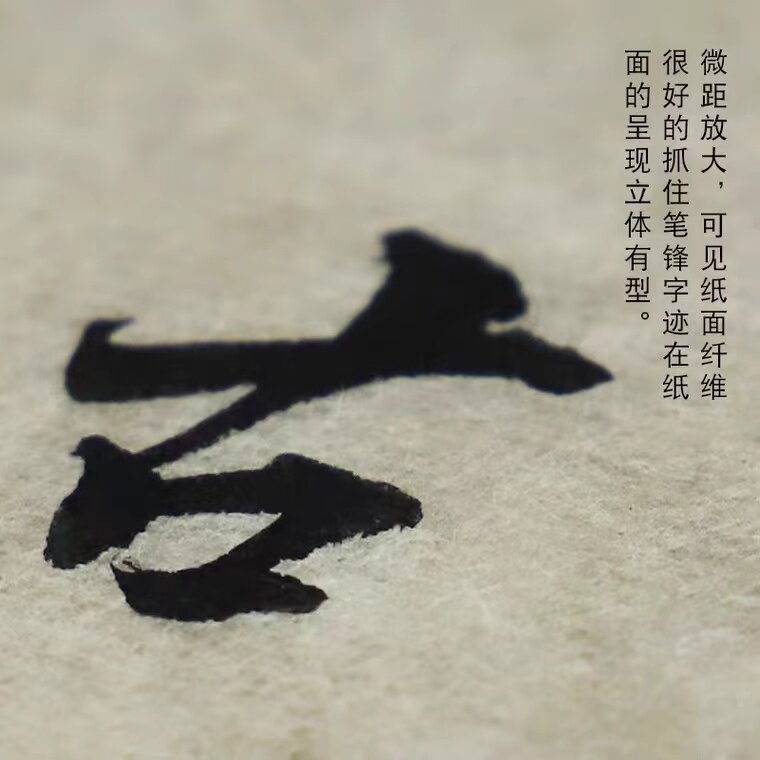 微距放大，可见纸面纤维
很好的抓住笔锋字迹在纸
面的呈现立体有型。
右